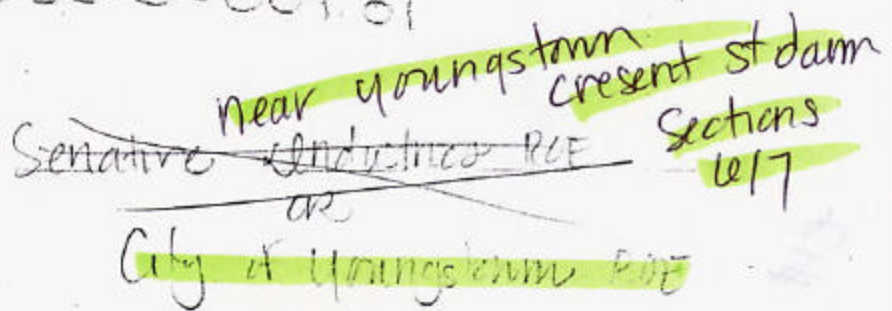 near youngstown
cresent st damn
Sections
6/7
Senative Industries ROE
or
City of Youngstown ROE